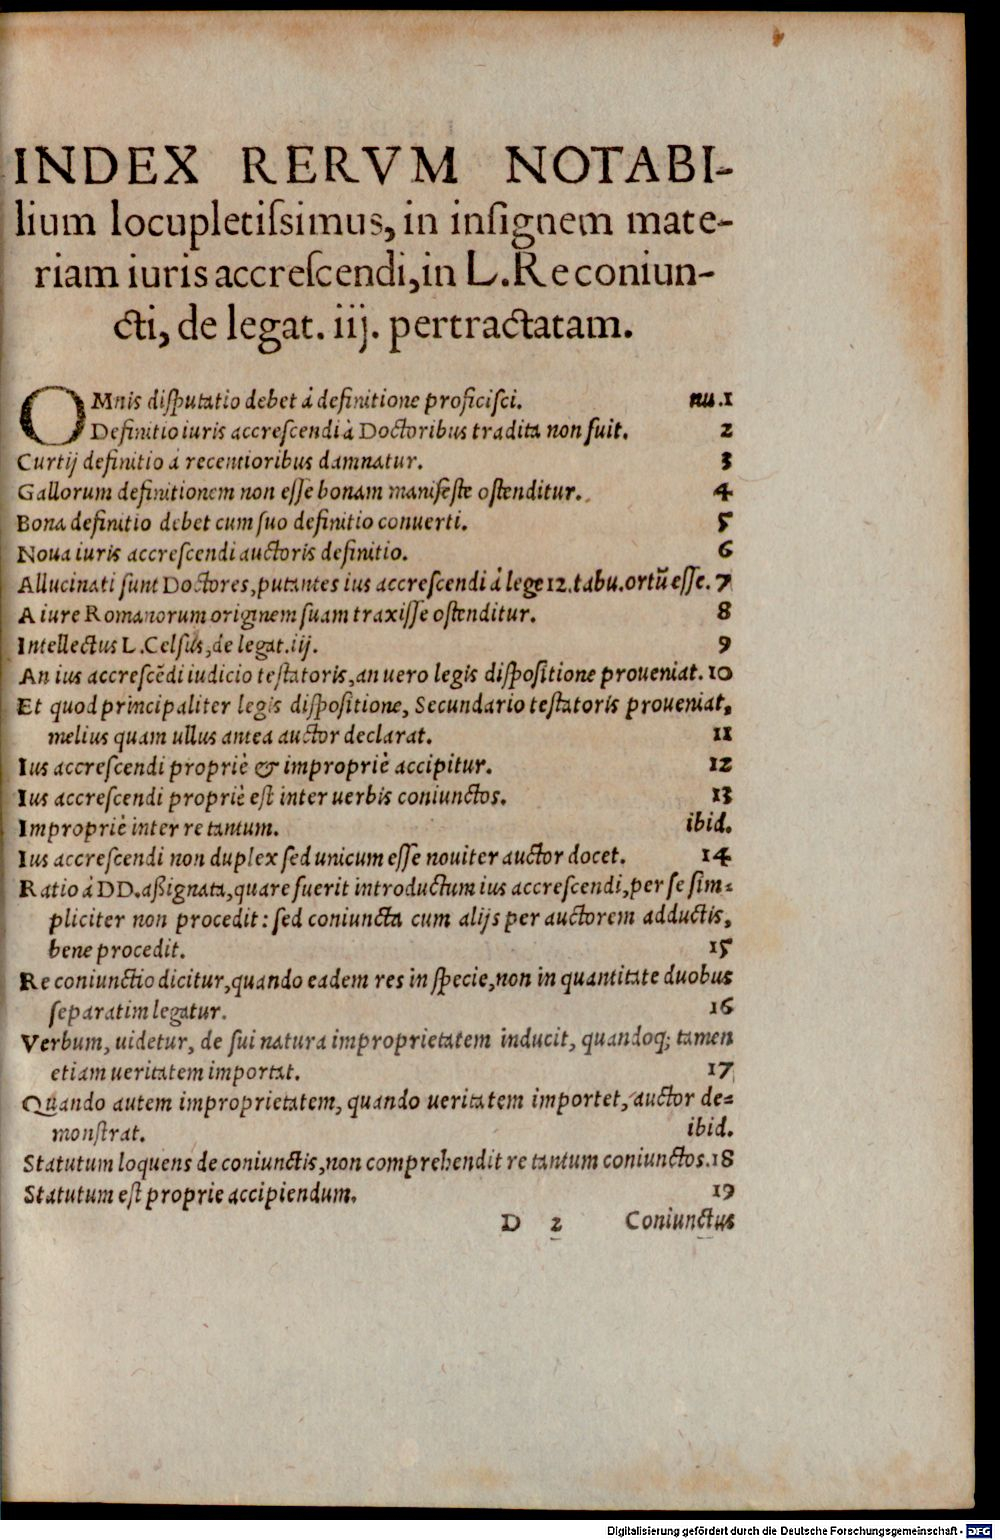 INDEX RERVM NOTABI-
lium locupletiſsimus, in inſignem mate-
riam iuris accreſcendi, in L. Re coniun-
cti, de legat. iij. pertractatam.
OMnis diſputatio debet à definitione proficiſci. nu.1
Definitio iuris accreſcendi à Doctoribus tradita non fuit. 2
Curtij definitio à recentioribus damnatur. 3
Gallorum definitionem non eſſe bonam manifeſte oſtenditur. 4
Bona definitio debet cum ſuo definitio conuerti. 5
Noua iuris accreſcendi auctoris definitio. 6
Allucinati ſunt Doctores, putantes ius accreſcendi à lege 12. tabu. ortũ eſſe. 7
A iure Romanorum originem ſuam traxiſſe oſtenditur. 8
Intellectus L. Celſus, de legat. iij. 9
An ius accreſcẽdi iudicio teſtatoris, an uero legis diſpoſitione proueniat. 10
Et quod principaliter legis diſpoſitione, Secundario teſtatoris proueniat,
melius quam ullus antea auctor declarat. 11
Ius accreſcendi propriè & impropriè accipitur. 12
Ius accreſcendi propriè eſt inter uerbis coniunctos. 13
Impropriè inter re tantum. ibid.
Ius accreſcendi non duplex ſed unicum eſſe nouiter auctor docet. 14
Ratio à DD. aßignata, quare fuerit introductum ius accreſcendi, per ſe ſim-
pliciter non procedit: ſed coniuncta cum alijs per auctorem adductis,
bene procedit. 15
Re coniunctio dicitur, quando eadem res in ſpecie, non in quantitate duobus
ſeparatim legatur. 16
Verbum, uidetur, de ſui natura improprietatem inducit, quandoq; tamen
etiam ueritatem importat. 17
Quando autem improprietatem, quando ueritatem importet, auctor de-
monſtrat. ibid.
Statutum loquens de coniunctis, non comprehendit re tantum coniunctos. 18
Statutum eſt proprie accipiendum. 19
D 2 Coniunctus
Digitalisierung gefördert durch die Deutsche Forschungsgemeinschaft - DFG